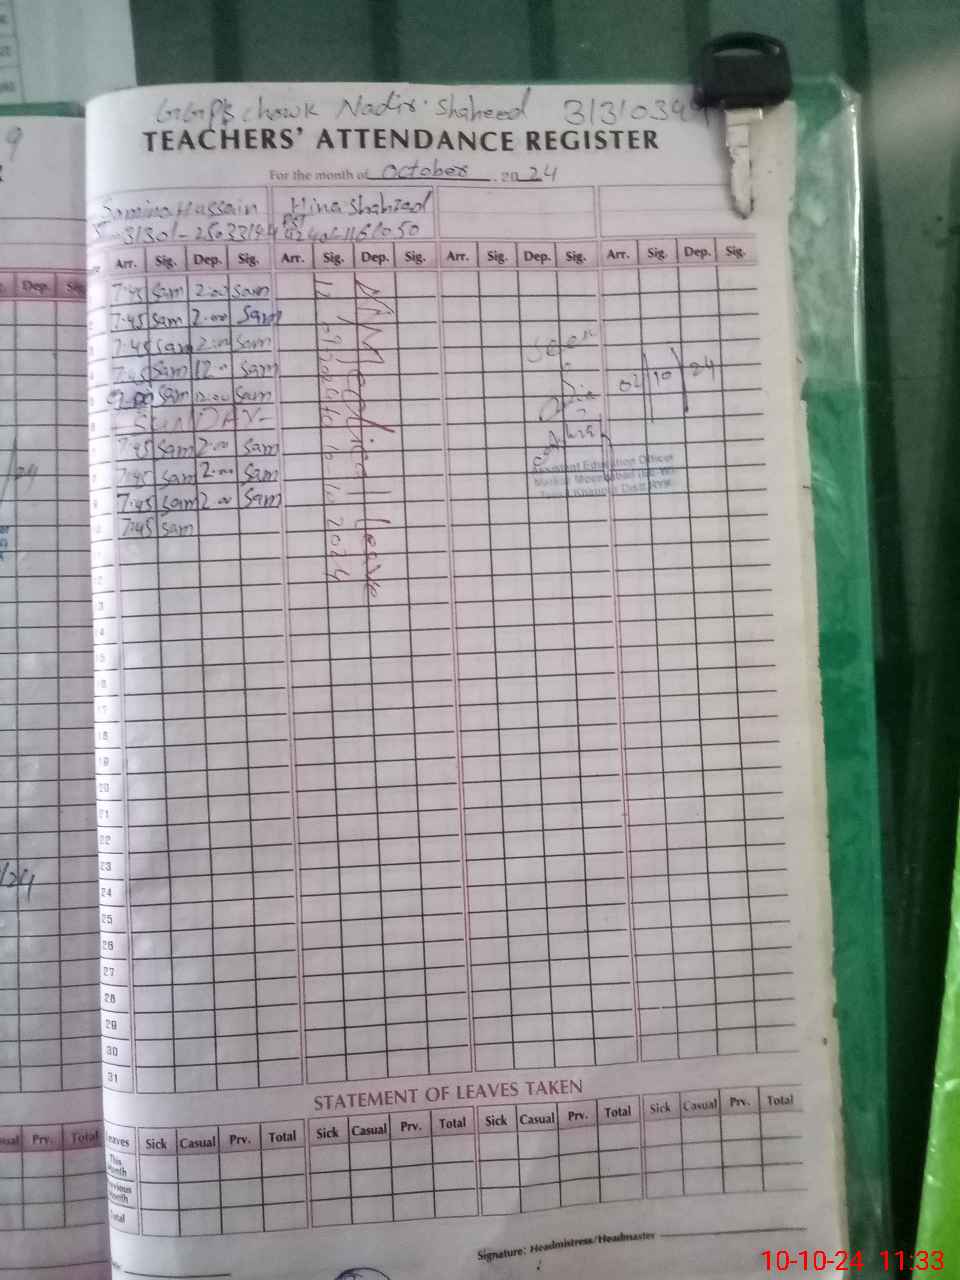 GGPS chowk Nadir Shaheed 313103
TEACHERS' ATTENDANCE REGISTER
For the month of October 2024
Samina Hussain Hina Shahzad
Arr. Sig. Dep. Sig. Arr. Sig. Dep. Sig. Arr. Sig. Dep. Sig. Arr. Sig. Dep. Sig.
7:45 Sam 2:00 Sam
7:45 Sam 2:00 Sam
7:45 Sam 2:00 Sam
7:45 Sam 12:00 Sam
Sam 12:00 Sam
SUNDAY
7:45 Sam 2:00 Sam
7:45 Sam 2:00 Sam
7:45 Sam 2:00 Sam
7:45 Sam
Medical leave
2024
Seen
02/10/24
Assistant Education Officer
12
13
14
15
16
17
18
19
20
21
22
23
24
25
26
27
28
29
30
31
STATEMENT OF LEAVES TAKEN
Leaves Sick Casual Prv. Total Sick Casual Prv. Total Sick Casual Prv. Total Sick Casual Prv. Total
This Month
Previous Month
Total
Signature: Headmistress/Headmaster
Dep.
Prv. Total
10-10-24 11:33